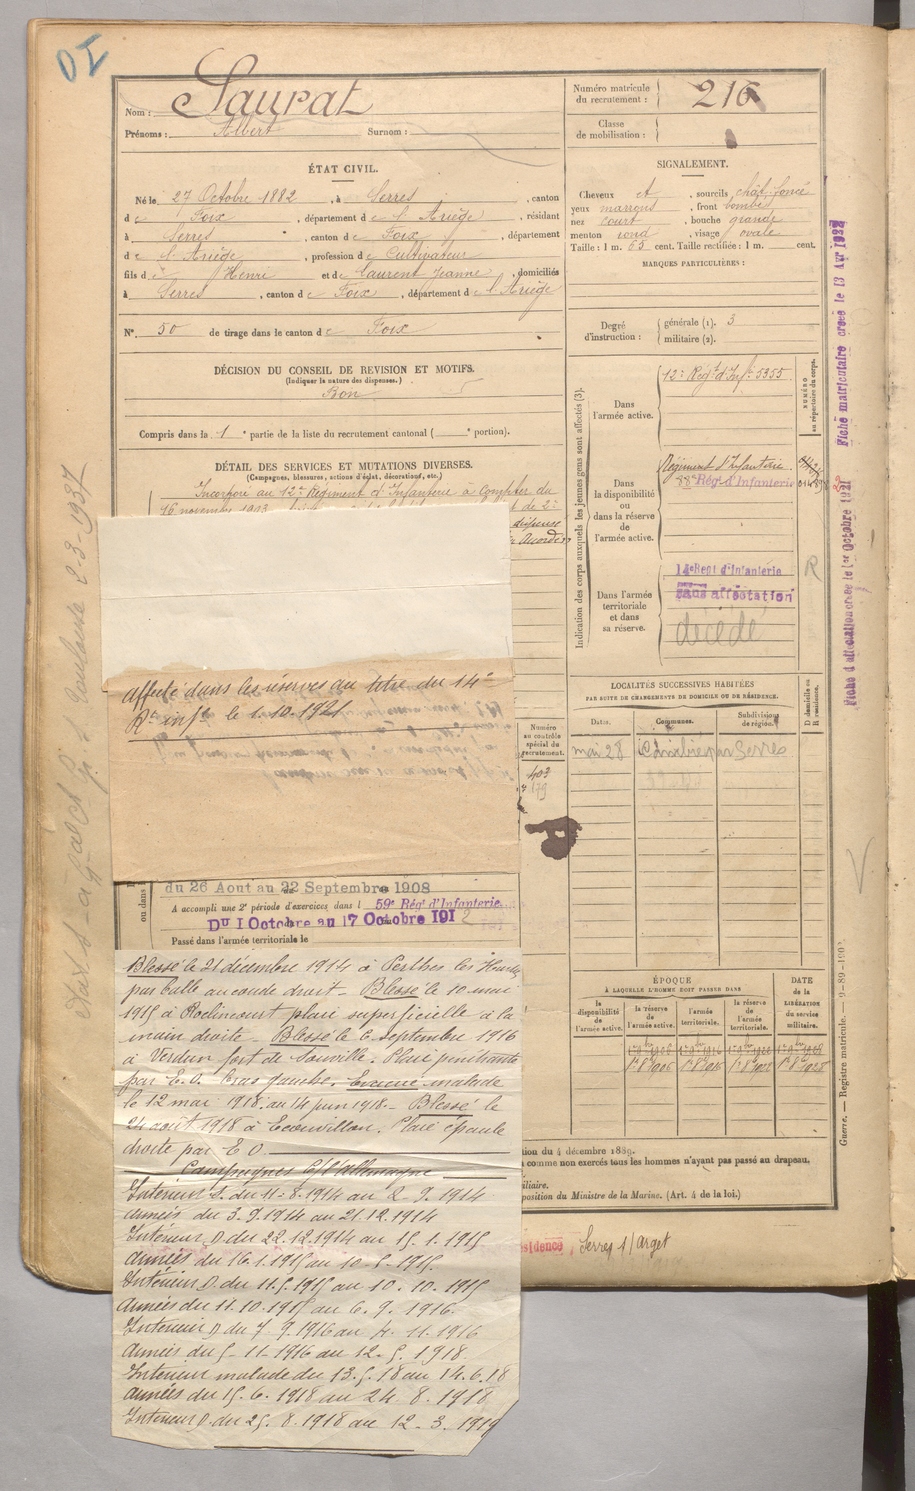 IO
Nom : Saurat
Prénoms : Albert Surnom :
Numéro matricule du recrutement : 216
Classe de mobilisation :
ÉTAT CIVIL.
Né le 27 Octobre 1882, à Serres, canton
de Foix, département de l'Ariège, résidant
à Serres, canton de Foix, département
de l'Ariège, profession de Cultivateur
fils de Henri et de Laurent Jeanne, domiciliés
à Serres, canton de Foix, département de l'Ariège
N° 50 de tirage dans le canton de Foix
SIGNALEMENT.
Cheveux et, sourcils chât. foncé
yeux marrons, front bombé
nez court, bouche grande
menton rond, visage ovale
Taille : 1 m. 65 cent. Taille rectifiée : 1 m. cent.
MARQUES PARTICULIÈRES :
Degré d'instruction : générale (1). 3
militaire (2).
DÉCISION DU CONSEIL DE REVISION ET MOTIFS.
(Indiquer la nature des dispenses.)
Bon
Compris dans la 1e partie de la liste du recrutement cantonal ( e portion).
DÉTAIL DES SERVICES ET MUTATIONS DIVERSES.
(Campagnes, blessures, actions d'éclat, décorations, etc.)
Incorporé au 12e Régiment d'Infanterie à compter du
16 novembre 1903
Indication des corps auxquels les jeunes gens sont affectés (3).
NUMÉRO au répertoire du corps.
Dans l'armée active.
12e Régt d'Infie 5355
Dans la disponibilité ou dans la réserve de l'armée active.
Régiment d'Infanterie
88e Régt d'Infanterie
Dans l'armée territoriale et dans sa réserve.
14e Regt d'Infanterie
sans affectation
décédé
R
Fiche matriculaire créée le 13 Avr 1928
Fiche d'affectation créée le 1er Octobre 1921
LOCALITÉS SUCCESSIVES HABITÉES
PAR SUITE DE CHANGEMENTS DE DOMICILE OU DE RÉSIDENCE.
Dates. Communes. Subdivisions de région. D domicile ou R résidence.
mai 28 par Serres
Numéro au contrôle spécial du recrutement.
403
179
Affecté dans les réserves au titre du 14e
Rt infie le 1.10.1921
ou dans
du 26 Aout au 22 Septembre 1908
A accompli une 2e période d'exercices dans l 59e Régt d'Infanterie
Du 1 Octobre au 17 Octobre 1912
Passé dans l'armée territoriale le
Blessé le 21 décembre 1914 à Perthes les Hurlus
par balle au coude droit - Blessé le 10 mai
1915 à Roclincourt plaie superficielle à la
main droite - Blessé le 6 septembre 1916
à Verdun fort de Souville. Plaie pénétrante
par E.O. bras gauche. Evacué malade
le 12 mai 1918 au 14 juin 1918 - Blessé le
24 août 1918 à Ecouvillon. Plaie épaule
droite par E O
Campagnes C/ l'Allemagne
Intérieur S. du 11-8-1914 au 2.9.1914
Armées du 3.9.1914 au 21.12.1914
Intérieur D du 22.12.1914 au 15.1.1915
Armées du 16.1.1915 au 10-5-1915.
Intérieur D. du 11.5.1915 au 10.10.1915
Armées du 11.10.1915 au 6.9.1916.
Intérieur D du 7.9.1916 au 4.11.1916
Armées du 5-11-1916 au 12.5.1918.
Intérieur malade du 13.5.18 au 14.6.18
Armées du 15.6.1918 au 24.8.1918
Intérieur D. du 25.8.1918 au 12-3.1919
ÉPOQUE
À LAQUELLE L'HOMME DOIT PASSER DANS
la disponibilité de l'armée active. la réserve de l'armée active. l'armée territoriale. la réserve de l'armée territoriale.
DATE de la LIBÉRATION du service militaire.
tion du 4 décembre 1889.
comme non exercés tous les hommes n'ayant pas passé au drapeau.
iliaire.
position du Ministre de la Marine. (Art. 4 de la loi.)
ésidence, Serres s/ Arget
Guerre. — Registre matricule.
2-3-1937